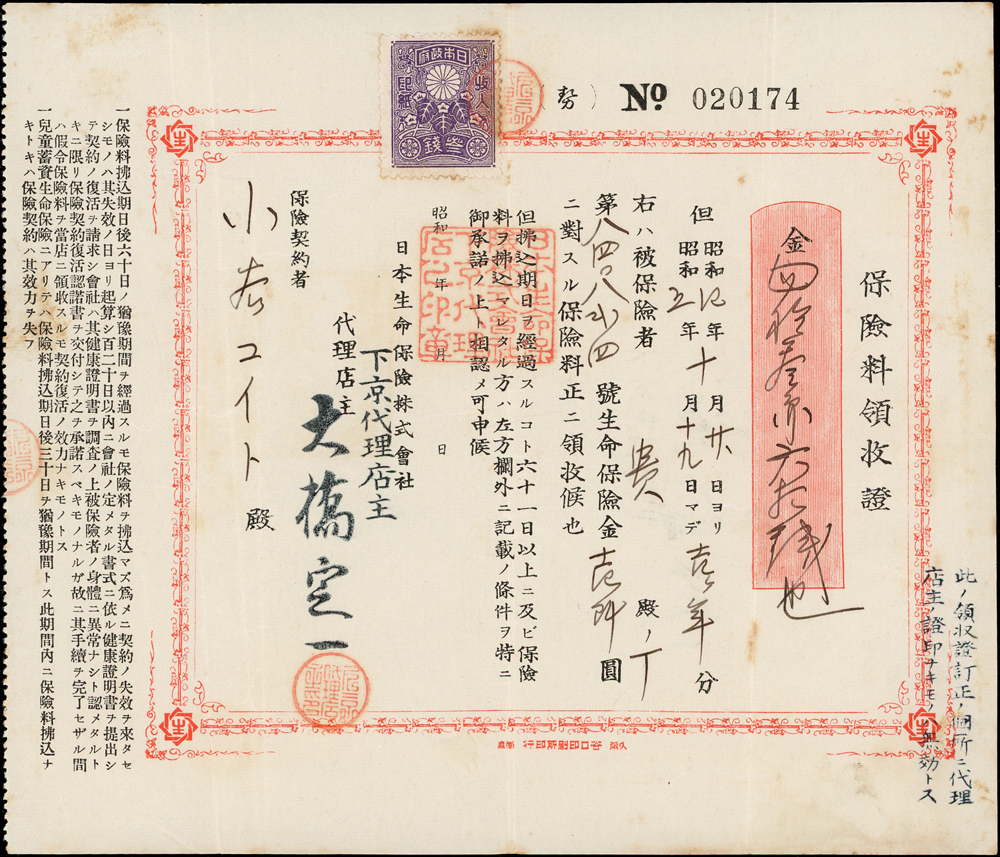 此ノ領収證訂正ノ個所ニ代理
店主ノ證印ナキモノハ無効トス
(勢) № 020174
保險料領收證
金 四拾參円六拾錢也
但 昭和 年十月廿 日ヨリ 壱ヶ年分
昭和五年十月十九日マデ
右ハ被保險者 貴 殿ノ
第八四〇八弐四號生命保險金壱阡圓
ニ對スル保險料正ニ領收候也
但拂込期日ヲ經過スルコト六十一日以上ニ及ビ保險
料ヲ拂込マレタル方ハ左方欄外ニ記載ノ條件ヲ特ニ
御承諾ノ上ト相認メ可申候
昭和 年 月 日
日本生命保險株式會社
下京代理店主
代理店主 大橋定一
保險契約者
小 コイト 殿
日本政府
收入印紙
參錢
一保險料拂込期日後六十日ノ猶豫期間ヲ經過スルモ保險料ヲ拂込マズ爲メニ契約ノ失效ヲ來タセ
シモノハ其失效ノ日ヨリ起算シ百二十日以内ニ會社ノ定メタル書式ニ依ル健康證明書ヲ提出シ
テ契約ノ復活ヲ請求シ會社ハ其健康證明書ヲ調査ノ上被保險者ノ身體ニ異常ナシト認メタルト
キニ限リ保險契約復活認諾書ヲ交付シテ之ヲ承諾スベキモノナルガ故ニ其手續ヲ完了セザル間
ハ假令保險料ヲ當店ニ領收スルモ契約復活ノ效力ナキモノトス
一兒童蓄資生命保險ニアリテハ保險料拂込期日後三十日ヲ猶豫期間トス此期間内ニ保險料拂込ナ
キトキハ保險契約ハ其效力ヲ失フ